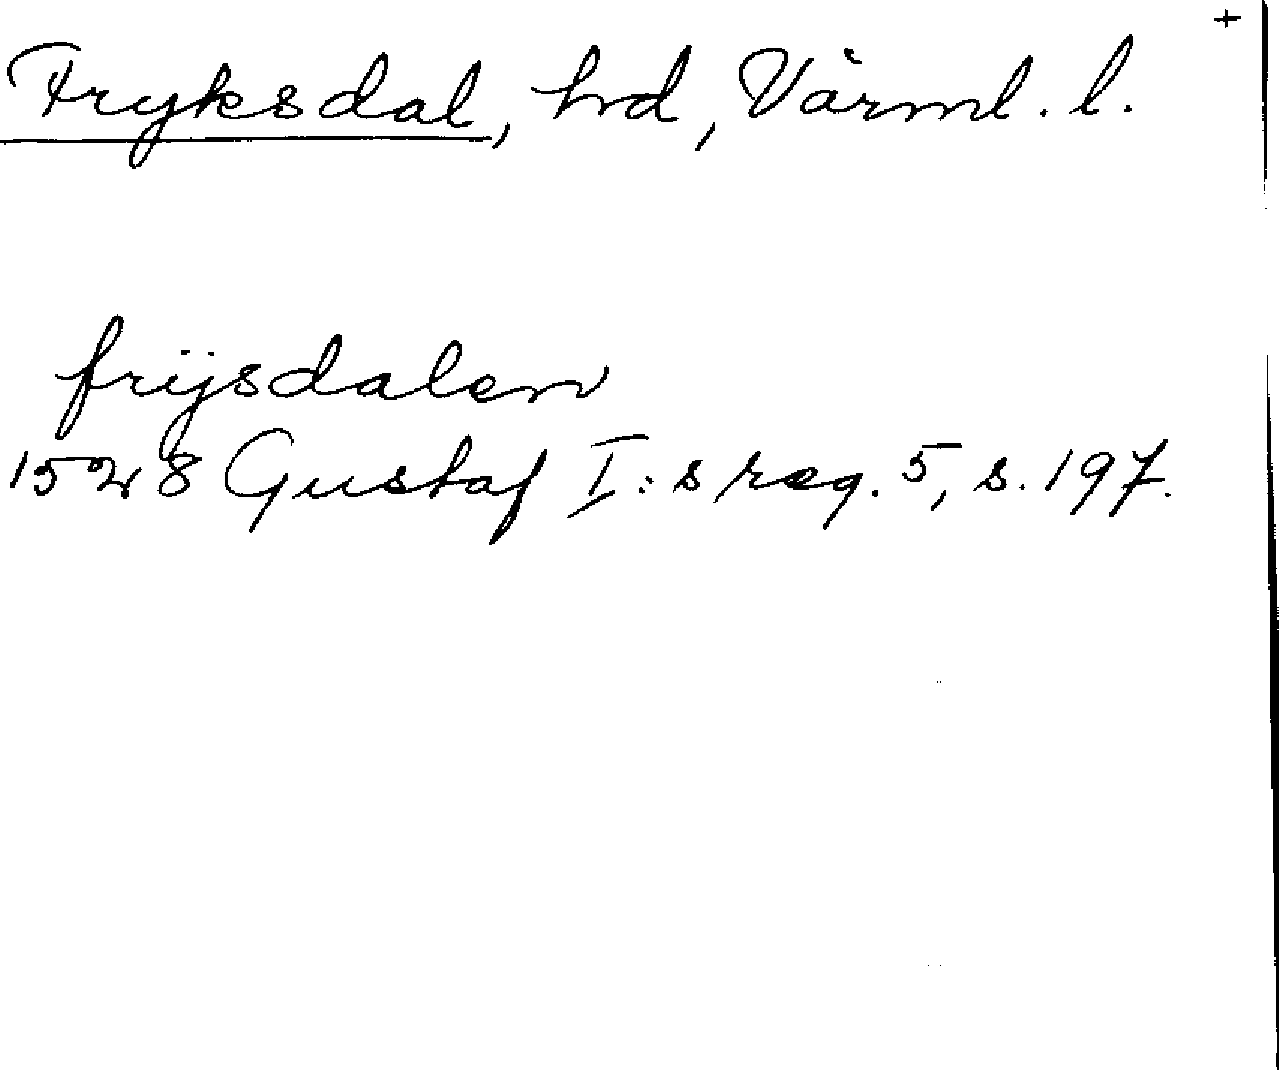 +
Fryksdal, hd, Värml. l.
frijsdalen
1528 Gustaf I:s reg. 5, s. 197.